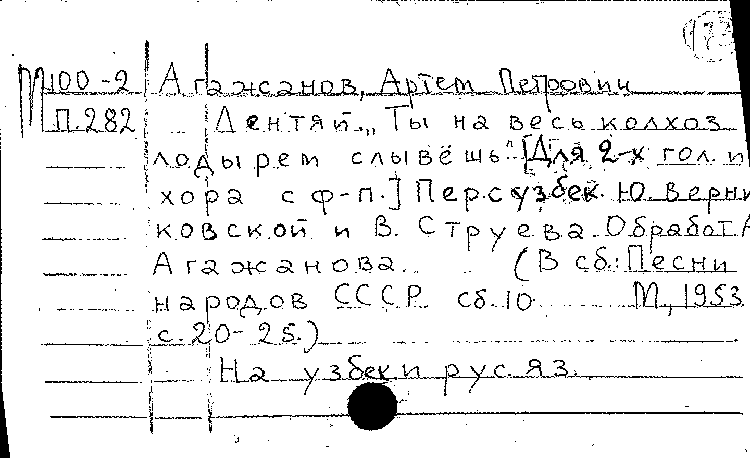 173
М100-2 Агажсанов, Артем Петрович
П.282 Лентяй. „Ты на весь колхоз
лодырем слывёшь" [Для 2-х гол. и
хора с ф-п.] Пер.с узбек. Ю. Верни
ковской и В. Струева. Обработ А
Агажанова. (В сб.: Песни
народов СССР сб. 10 М, 1953
с. 20-25.)
На узбек и рус яз.